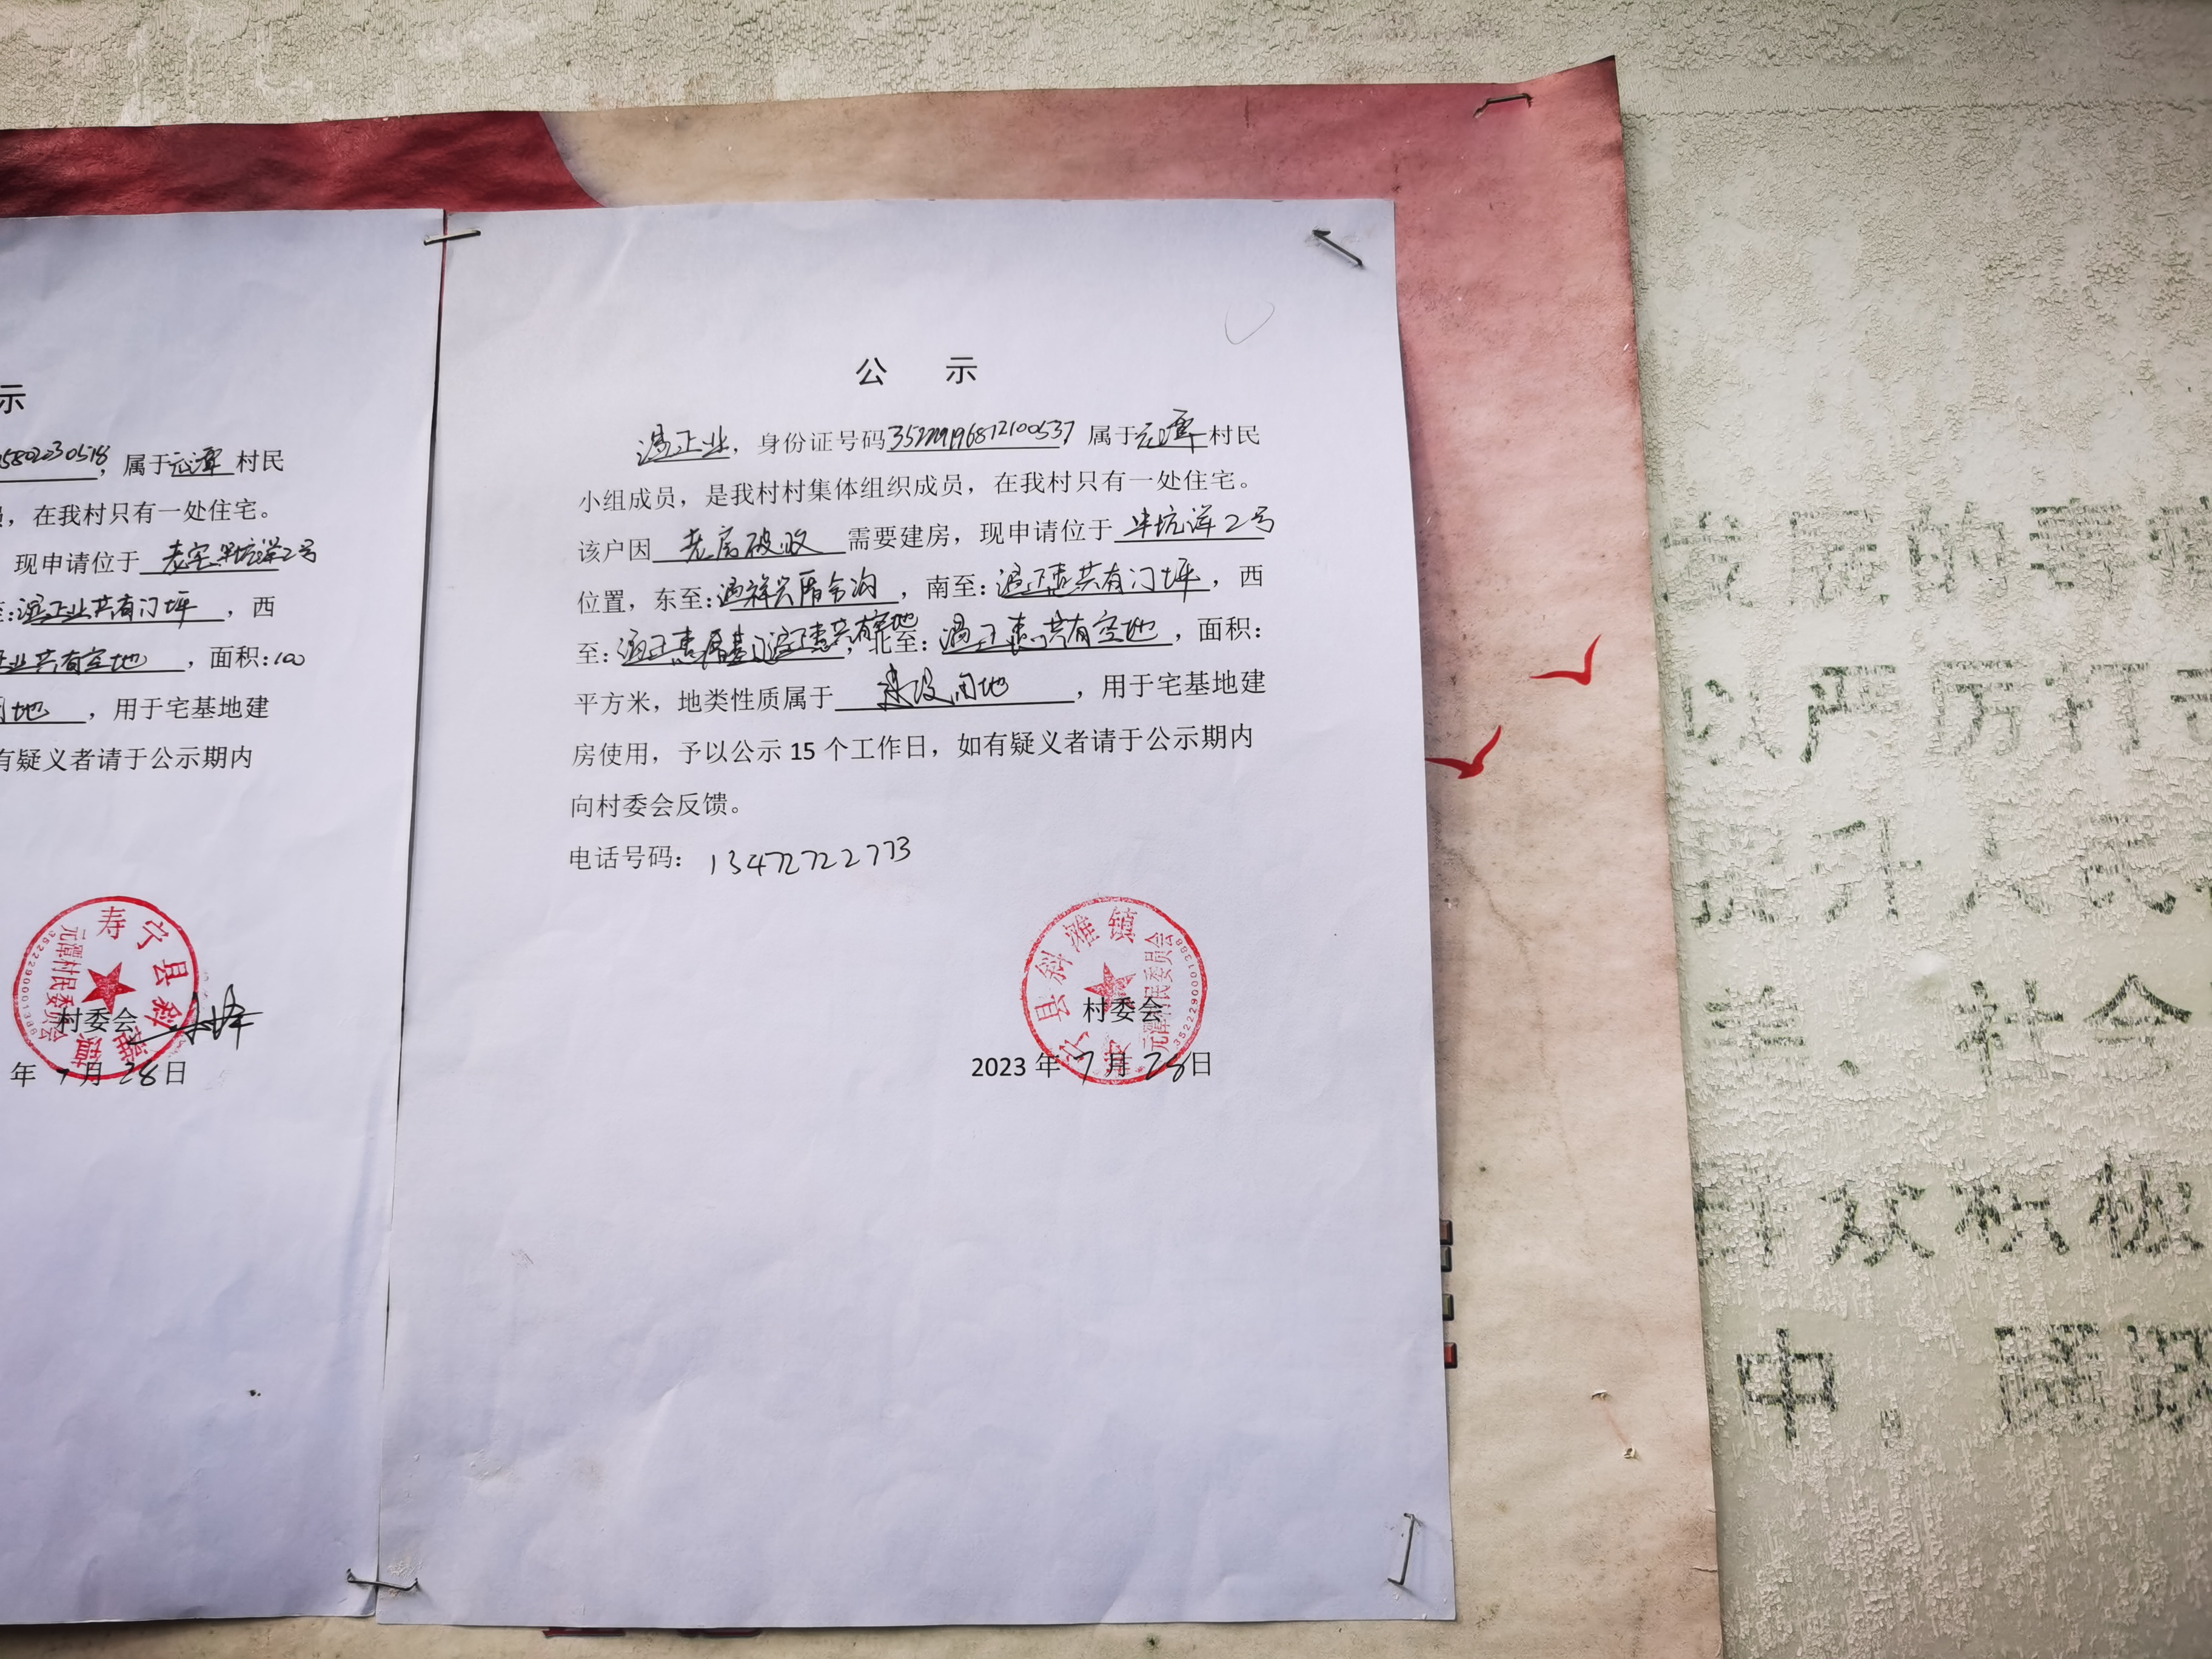 示
5802230518，属于元潭村民
，在我村只有一处住宅。
现申请位于老宅半坑洋2号
：温正业共有门坪，西
业共有空地，面积：100
用地，用于宅基地建
有疑义者请于公示期内
寿宁县斜滩镇
元潭村民委员会
村委会
年7月28日
公 示
温正业，身份证号码352229196812100537属于元潭村民
小组成员，是我村村集体组织成员，在我村只有一处住宅。
该户因老房破败需要建房，现申请位于半坑洋2号
位置，东至：温祥兴厝后沟，南至：温正惠共有门坪，西
至：温正惠厝基门温正惠共有空地，北至：温正惠共有空地，面积：
平方米，地类性质属于建设用地，用于宅基地建
房使用，予以公示15个工作日，如有疑义者请于公示期内
向村委会反馈。
电话号码：13472722773
寿宁县斜滩镇
元潭村民委员会
3522290001388
村委会
2023年7月28日
发展的事
以严厉打击
提升人民
美、社会
群众积极
中，